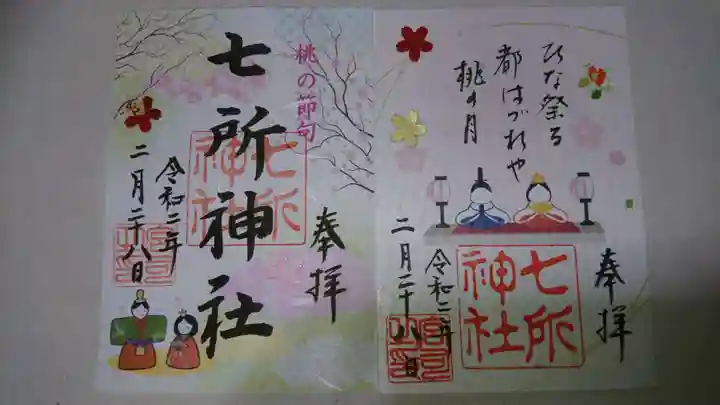 ひな祭る
都はづれや
桃の月
奉拝
七所
神社
令和二年
二月二十八日
桃の節句
奉拝
七所神社
七所
神社
令和二年
二月二十八日